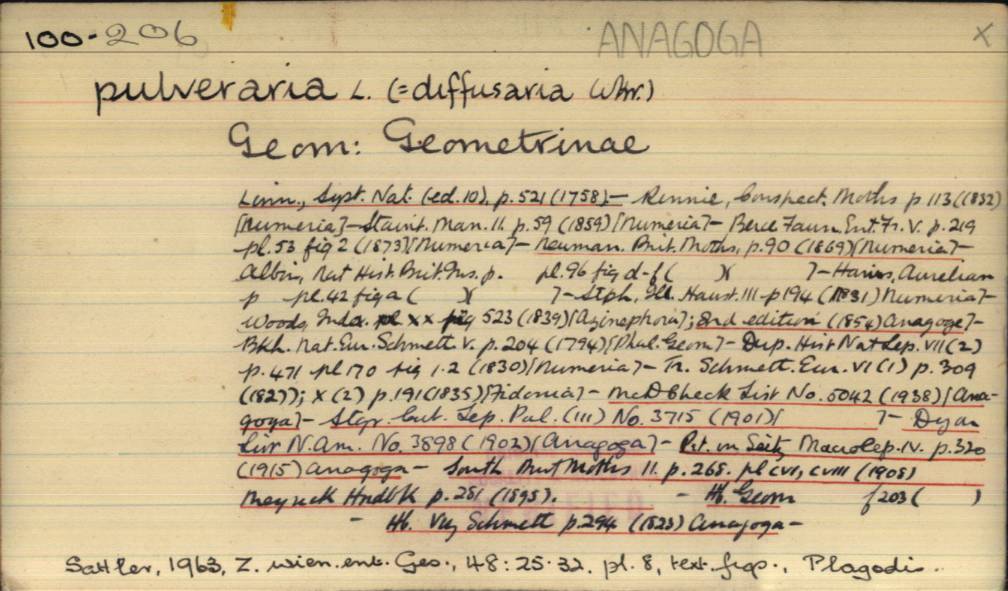 100-206 ANAGOGA X
pulveraria L. (= diffusaria Wkr.)
Geom: Geometrinae
Linn., Syst. Nat. (ed. 10), p. 521 (1758) — Rennie, Conspect. Moths p 113 (1832)
[Numeria] — Staint. Man. II. p. 59 (1859) [Numeria] — Berce Faun. Ent. Fr. V. p. 219
pl. 53 fig 2 (1873) [Numeria] — Newman. Brit. Moths, p. 90 (1869) [Numeria] —
Albin, Nat Hist Brit Ins. p. pl. 96 fig d-f ( )( ] — Harris, Aurelian
p pl. 42 fig a ( )( ] — Stph, Ill. Haust. III p 194 (1831) Numeria] —
Wood, Index. xx fig 523 (1839) [Azinephora]; 2nd edition (1854) Anagoga] —
Bkh. Nat. Eur. Schmett V. p. 204 (1794) [Phal. Geom] — Dup. Hist Nat Lep. VII (2)
p. 471 pl 170 fig 1.2 (1830) [Numeria] — Tr. Schmett. Eur. VI (1) p. 309
(1827); X (2) p. 191 (1835) [Fidonia] — McD Check List No. 5042 (1938) [Ana-
goga] — Stgr. Cat. Lep. Pal. (III) No. 3715 (1901) [ ] — Dyar
List N. Am. No. 3898 (1902) [Anagoga] — Prt. in Seitz Macrolep. IV. p. 320
(1915) Anagoga — South Brit Moths II. p. 268. pl CVI, CVIII (1908)
Meyrick Hndbk p. 281 (1895). — Hb. Geom f 203 ( )
— Hb. Verz Schmett p. 294 (1823) Anagoga —
Sattler, 1963, Z. wien. ent. Ges., 48: 25-32. pl. 8, text-figs., Plagodis.